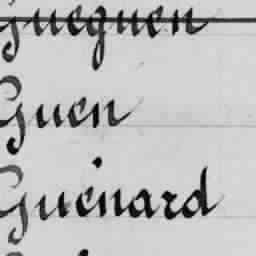 Gueguen
Guen
Guénard